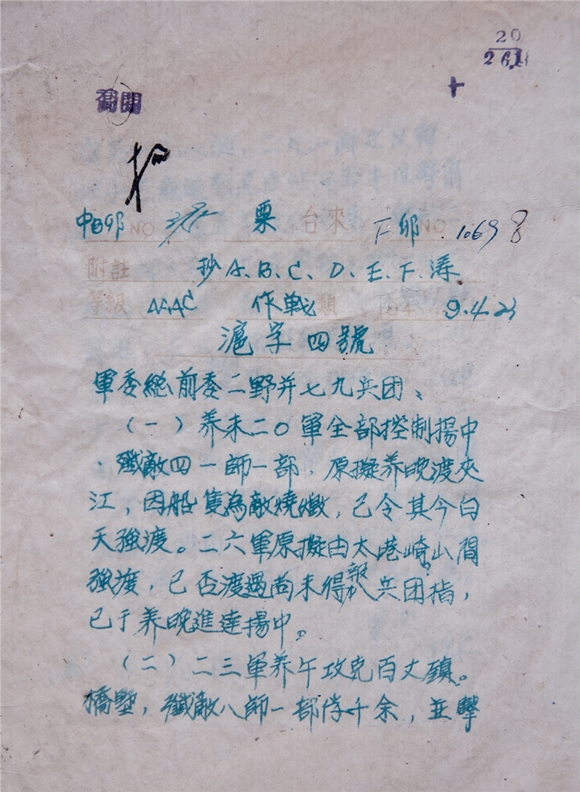 20
261
+
中卯 NO 票台來 下卯 NO 1069 号
附註 抄 A.B.C.D.E.F.濤
等級 AAAC 作戰類 9.4.23
滬字四號
軍委總前委二野并七九兵团、
(一)养未二〇軍全部控制揚中
,殲敵四一師一部,原擬养晚渡夾
江,因船隻為敵燒燬,已令其今白
天強渡。二六軍原擬由太港崎山間
強渡,已否渡過尚未得報。八兵团指,
已于养晚進達揚中。
(二)二三軍养午攻克百丈鎮。
橋墅,殲敵八師一部俘千余,並擊